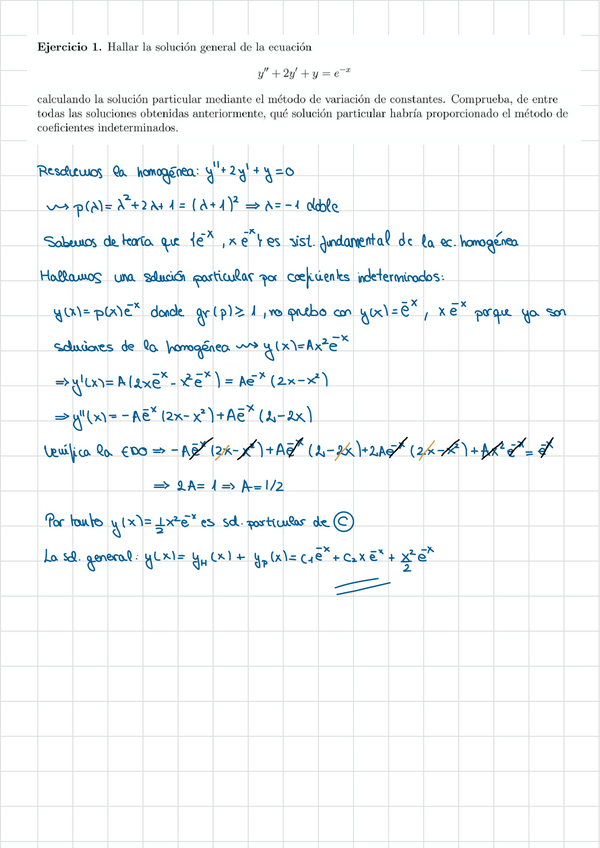 Ejercicio 1. Hallar la solución general de la ecuación
y'' + 2y' + y = e^{-x}
calculando la solución particular mediante el método de variación de constantes. Comprueba, de entre
todas las soluciones obtenidas anteriormente, qué solución particular habría proporcionado el método de
coeficientes indeterminados.
Resolvemos la homogénea: y'' + 2y' + y = 0
⇝ p(λ) = λ² + 2λ + 1 = (λ+1)² ⇒ λ = -1 doble
Sabemos de teoría que {e^{-x}, x e^{-x}} es sist. fundamental de la ec. homogénea
Hallamos una solución particular por coeficientes indeterminados:
y(x) = p(x)e^{-x} donde gr(p) ≥ 1, no pruebo con y(x) = e^{-x}, x e^{-x} porque ya son
soluciones de la homogénea ⇝ y(x) = Ax²e^{-x}
⇒ y'(x) = A(2xe^{-x} - x²e^{-x}) = Ae^{-x}(2x - x²)
⇒ y''(x) = -Ae^{-x}(2x - x²) + Ae^{-x}(2 - 2x)
Verifica la EDO ⇒ -Ae^{-x}(2x - x²) + Ae^{-x}(2 - 2x) + 2Ae^{-x}(2x - x²) + Ax²e^{-x} = e^{-x}
⇒ 2A = 1 ⇒ A = 1/2
Por tanto y(x) = \frac{1}{2}x²e^{-x} es sol. particular de Ⓒ
La sol. general: y(x) = y_H(x) + y_p(x) = c₁e^{-x} + c₂xe^{-x} + \frac{x²}{2}e^{-x}